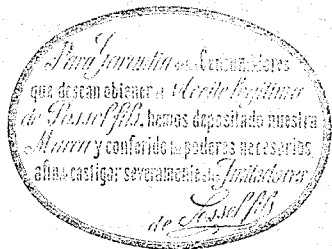 Para Garantia de los Consumidores
que desean obtener el Aceite legítimo
de Possel fils, hemos depositado nuestra
Marca y conferido los poderes necesarios
afin de castigar severamente a los Imitadores
de Possel fils